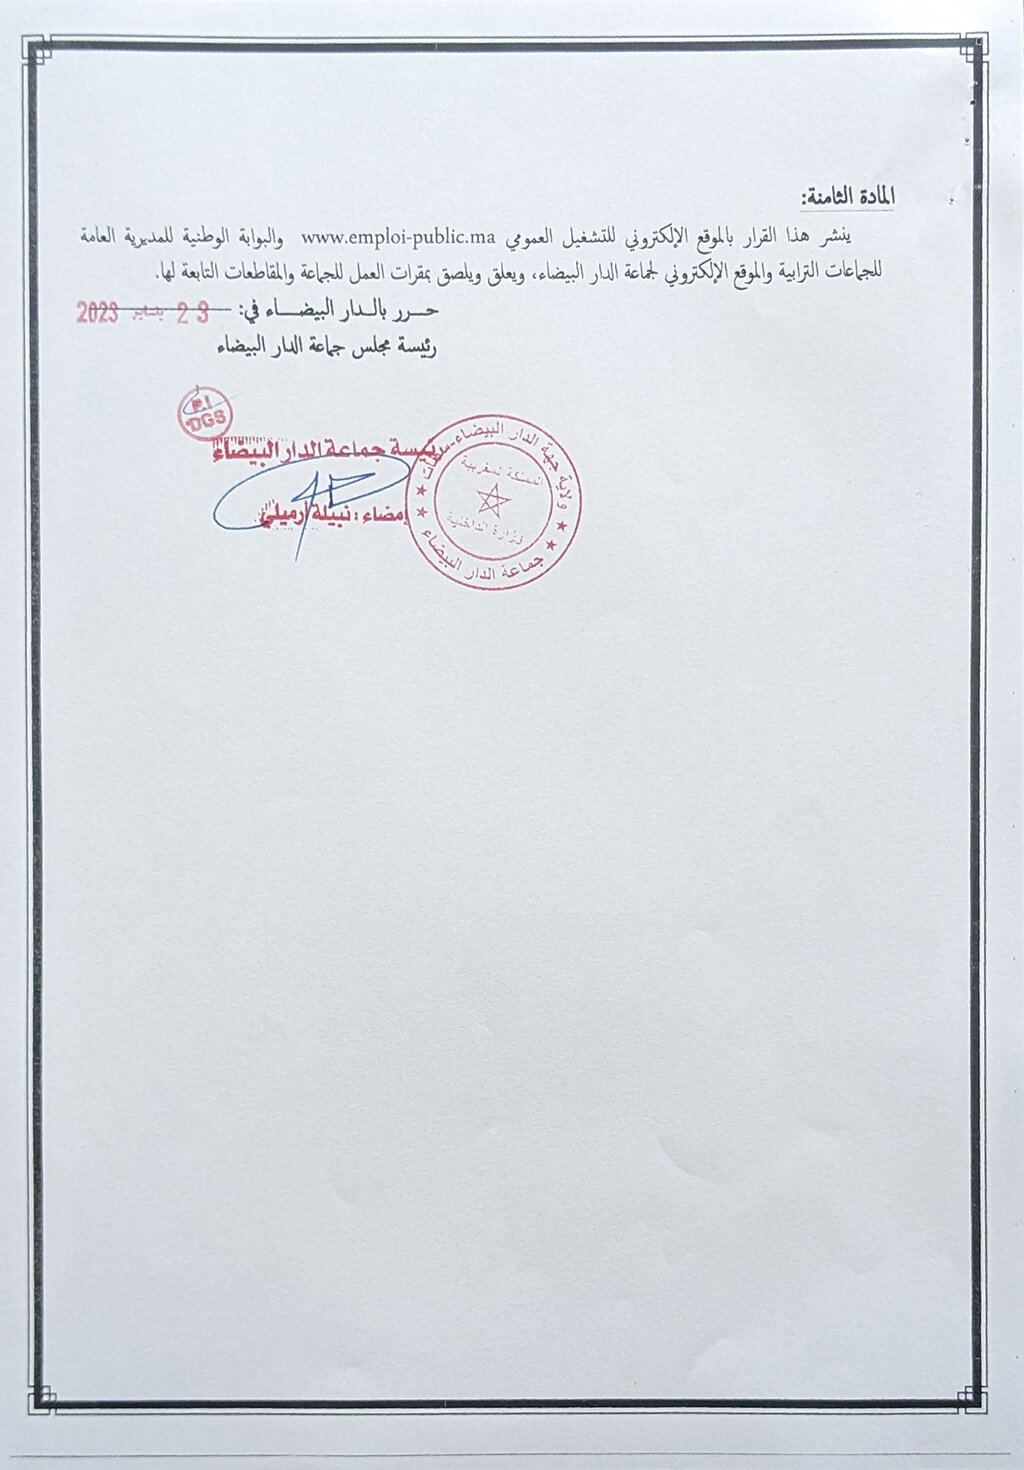 المادة الثامنة:
ينشر هذا القرار بالموقع الإلكتروني للتشغيل العمومي www.emploi-public.ma والبوابة الوطنية للمديرية العامة
للجماعات الترابية والموقع الإلكتروني لجماعة الدار البيضاء، ويعلق ويلصق بمقرات العمل للجماعة والمقاطعات التابعة لها.
حـــرر بالـدار البيضـــاء في: 23 يناير 2023
رئيسة مجلس جماعة الدار البيضاء
P.I
DGS
رئيسة جماعة الدار البيضاء
إمضاء : نبيلة ارميلي
ولاية جهة الدار البيضاء-سطات
المملكة المغربية
وزارة الداخلية
جماعة الدار البيضاء